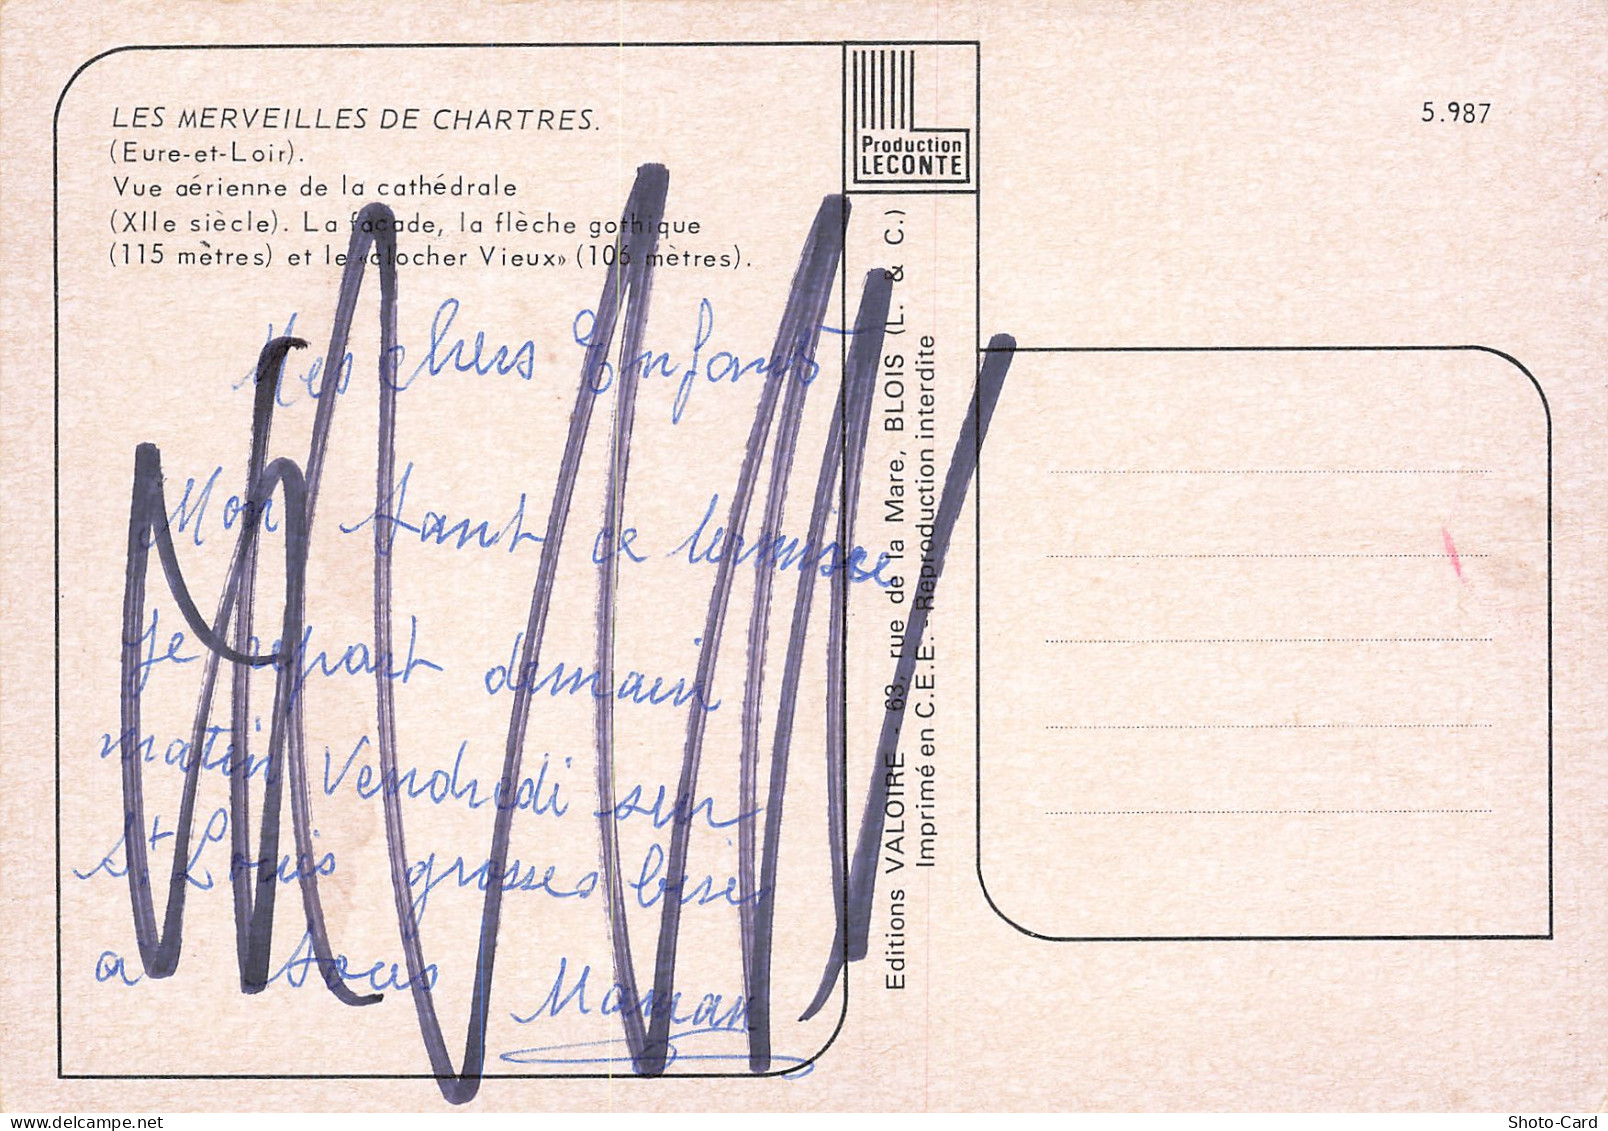 LES MERVEILLES DE CHARTRES.
(Eure-et-Loir).
Vue aérienne de la cathédrale
(XIIe siècle). La façade, la flèche gothique
(115 mètres) et le «clocher Vieux» (106 mètres).
Mes chers Enfants
Mon tant ce termisce
je repart demain
matin Vendredi sur
St. Louis grosses bises
a tous
Maman
Production
LECONTE
Editions VALOIRE - 63, rue de la Mare, BLOIS (L. & C.)
Imprimé en C.E.E. - Reproduction interdite
5.987
delcampe.net
Shoto-Card